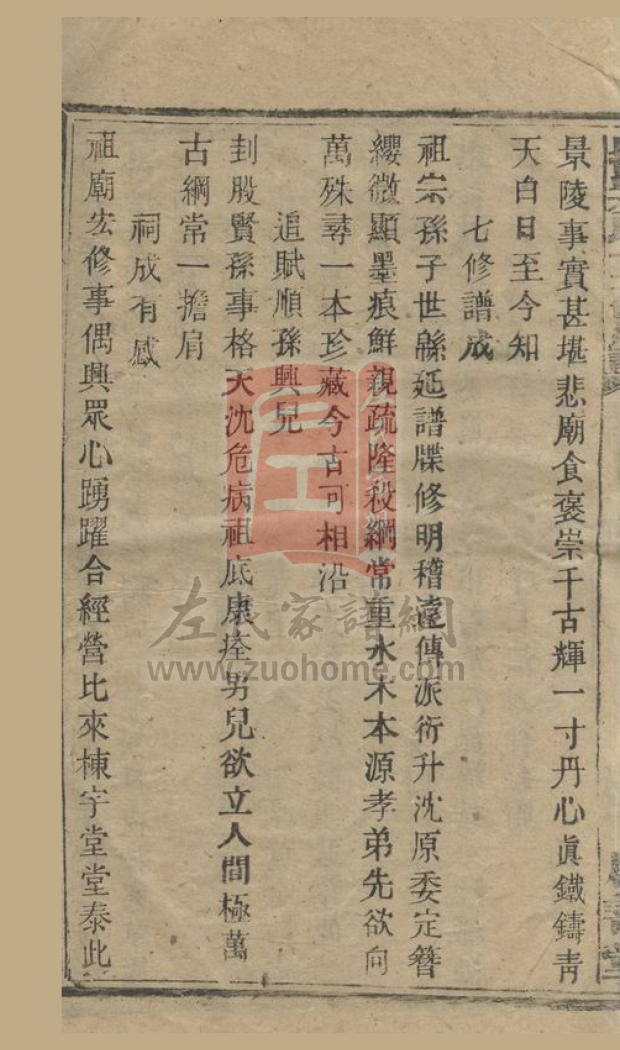 景陵事實甚堪悲廟食褒崇千古輝一寸丹心眞鐵鑄靑
天白日至今知
七修譜成
祖宗孫子世緜延譜牒修明稽遠傳派衍升沈原委定簪
纓微顯墨痕鮮親疏隆殺綱常重水木本源孝弟先欲向
萬殊尋一本珍藏今古可相沿
追賦順孫興兒
刲股賢孫事格天沈危病祖底康痊男兒欲立人間極萬
古綱常一擔肩
祠成有感
祖廟宏修事偶興眾心踴躍合經營比來棟宇堂堂泰此
左氏家譜網
www.zuohome.com